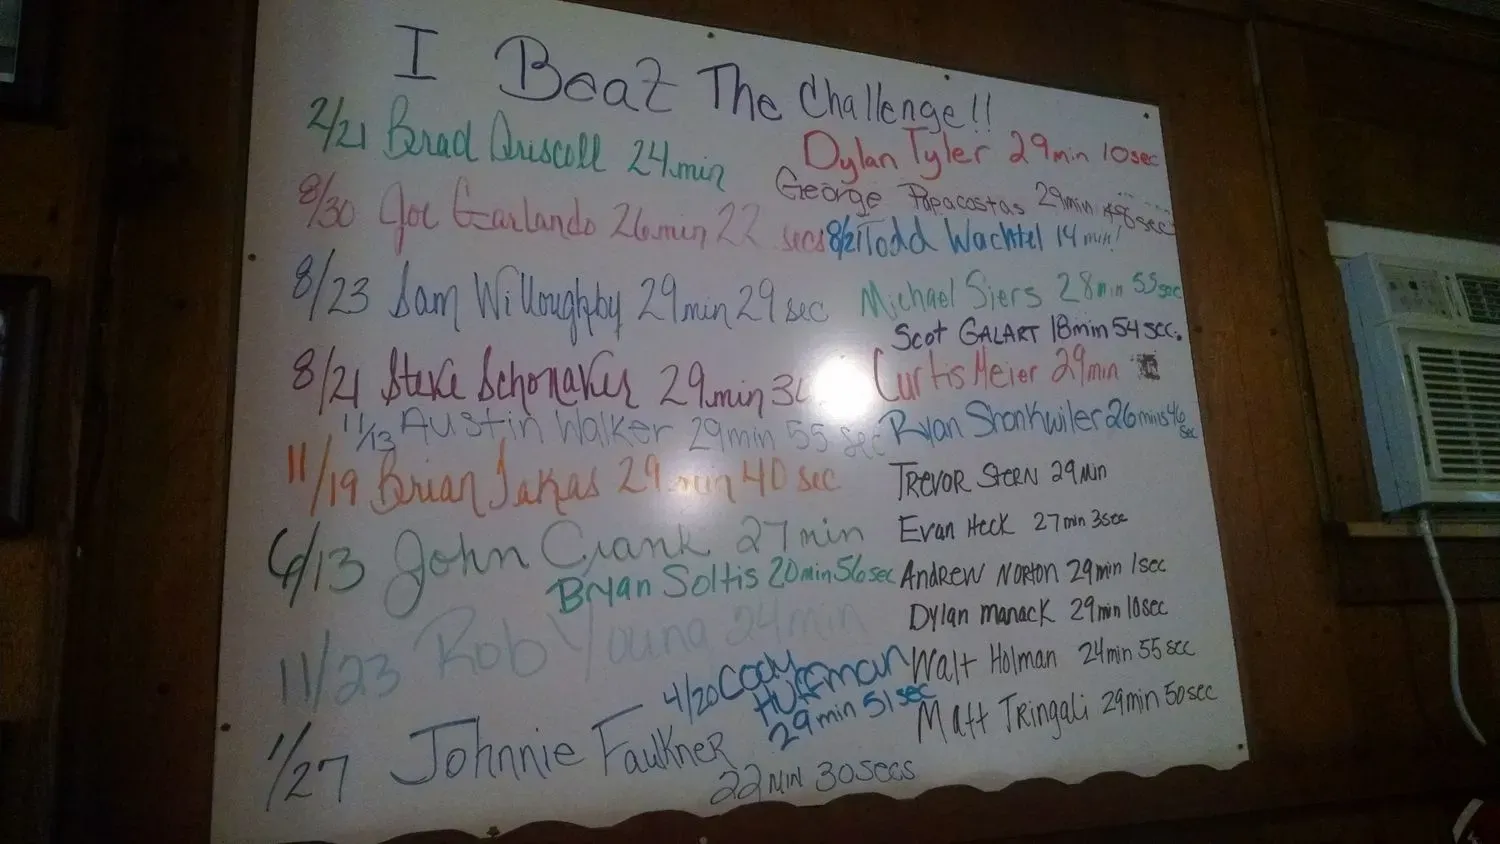 I Beat The Challenge!!
2/21 Brad Driscoll 24min
8/30 Joe Garlando 26min 22 secs
8/23 Sam Willoughby 29min 29 sec
8/21 Steve Schonaker 29min
11/13 Austin Walker 29min 55 sec
11/19 Brian Takas 29 min 40 sec
6/13 John Crank 27min
Bryan Soltis 20min 56sec
11/23 Rob Young 24min
4/20 Cody
Huffman
29min 51sec
1/27 Johnnie Faulkner
22MIN 30SECS
Dylan Tyler 29min 10sec
George Papacostas 29min
8/21 Todd Wachtel 14 min!
Michael Siers 28min 55sec
Scot GALART 18min 54 sec.
Curtis Meier 29min
Ryan Shonkwiler 26mins 46
sec
TREVOR STERN 29 Min
Evan Heck 27min 3sec
ANDREW NORTON 29min 1sec
Dylan manack 29min 10sec
Walt Holman 24min 55sec
Matt Tringali 29min 50sec